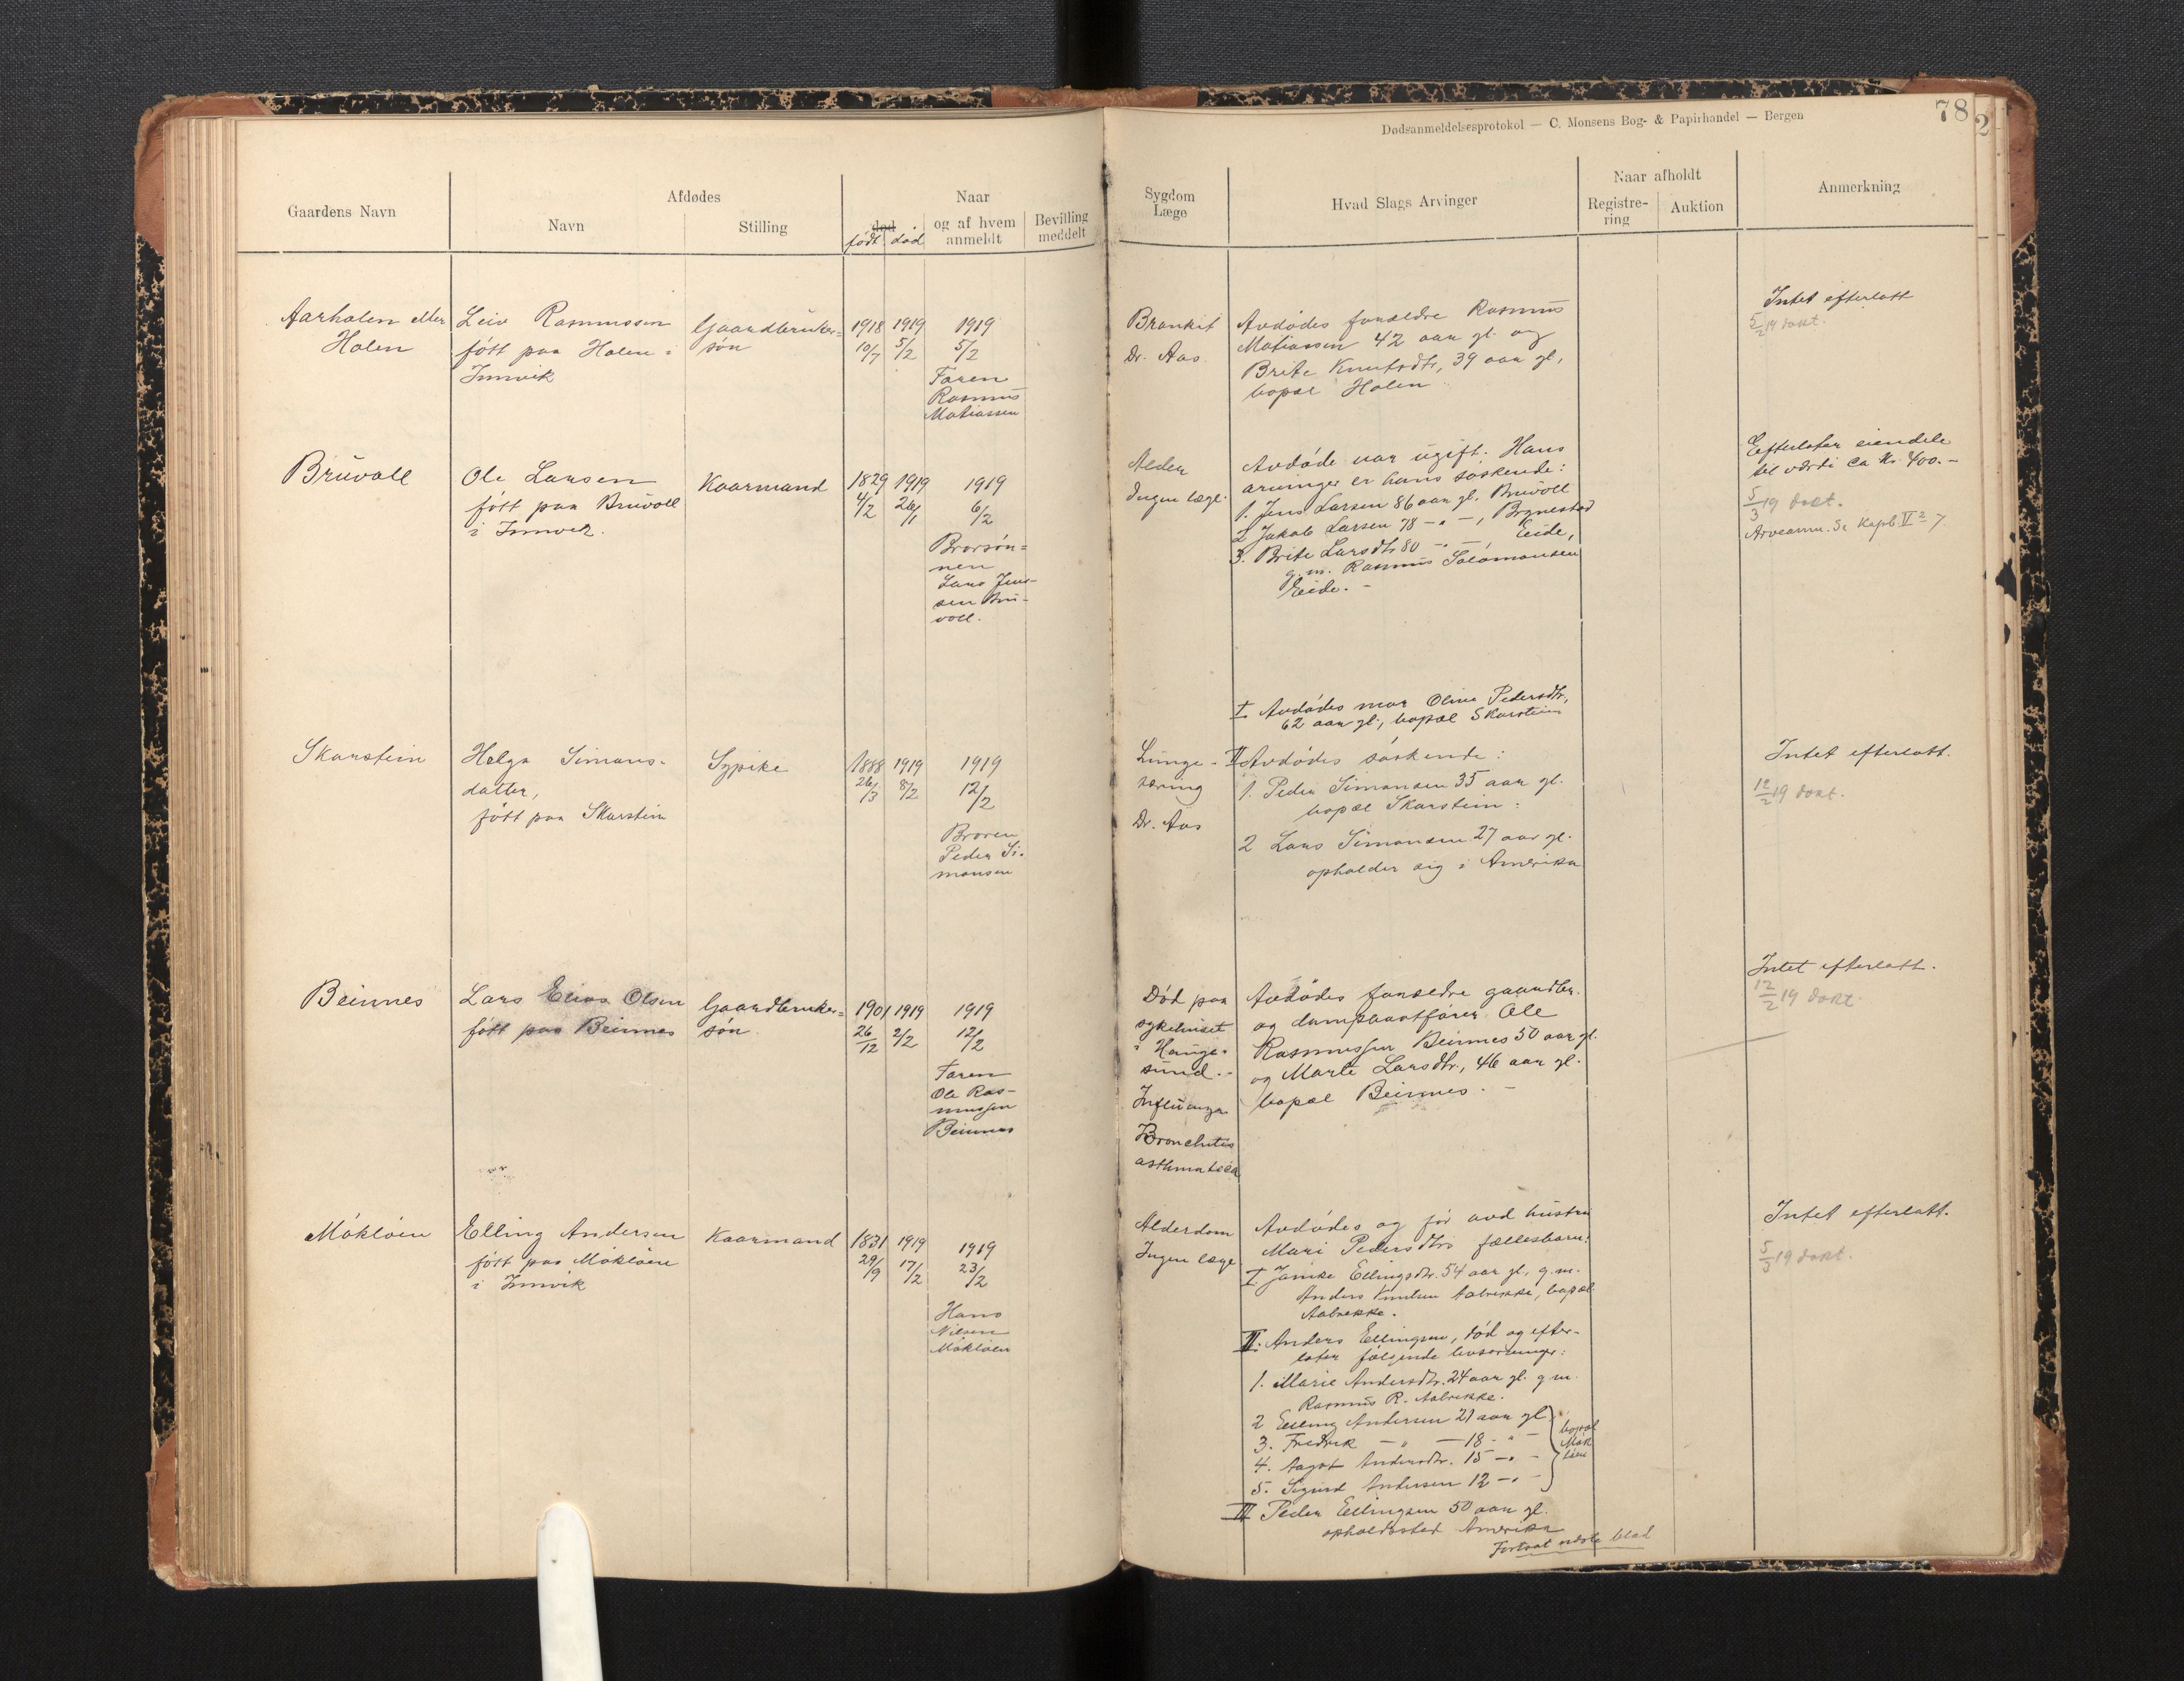 Dødsanmeldelsesprotokol — C. Monsens Bog- & Papirhandel — Bergen
78
2
Gaardens Navn
Afdødes
Navn
Stilling
død
født død
Naar
og af hvem
anmeldt
Bevilling
meddelt
Sygdom
Læge
Hvad Slags Arvinger
Naar afholdt
Registre-
ring
Auktion
Anmerkning
Aarholen eller
Holen
Leiv Rasmussen
født paa Holen i
Innvik
Gaardbruker-
søn
1918
10/7
1919
5/2
1919
5/2
Faren
Rasmus
Matiassen
Dr. Aas
Avdødes forældre Rasmus
Matiassen 42 aar gl. og
Brite Knutsdtr, 39 aar gl,
bopæl Holen
Intet efterlatt
5/2 19 dokt.
Bruvoll
Ole Larsen
født paa Bruvoll
i Innvik.
Kaarmand
1829
4/2
1919
26/1
1919
6/2
Brorsøn-
nen
Lars Jens-
sen Bru-
voll.
Alder
Ingen læge.
Avdøde var ugift. Hans
arvinger er hans søskende:
1. Jens Larsen 86 aar gl. Bruvoll
2 Jakob Larsen 78 -"-, Brynestad
3. Brite Larsdtr 80 -"-, Eide,
g. m. Rasmus Salamonsen
Eide. -
Efterlater eiendele
til værdi ca Kr. 400.-
5/3 19 dokt.
Arveanm. Se Kapt. V 2 7
Skarstein
Helga Simons-
datter,
født paa Skarstein
Sypike
1888
26/3
1919
8/2
1919
12/2
Broren
Peder Si-
monsen
Lunge-
tæring
Dr. Aas
I Avdødes mor Oline Pedersdtr,
62 aar gl., bopæl Skarstein
II Avdødes søskende:
1. Peder Simonsen 35 aar gl.
bopæl Skarstein:
2 Lars Simonsen 27 aar gl.
opholder sig i Amerika
Intet efterlatt.
12/2 19 dokt.
Beinnes
Lars Elias Olsen
født paa Beinnes
Gaardbruker-
søn
1901
26/12
1919
2/2
1919
12/2
Faren
Ole Ras-
mussen
Beinnes
Død paa
sykehuset
i Hauge-
sund.-
Influenza
Bronchitis
asthmatica
Avdødes forældre gaardbr.
og dampbaatfører Ole
Rasmussen Beinnes 50 aar gl.
og Marte Larsdtr., 46 aar gl.
bopæl Beinnes. -
Intet efterlatt.
12/2 19 dokt.
Mökløen
Elling Andersen
født paa Mökløen
i Innvik
Kaarmand
1831
29/9
1919
17/2
1919
23/2
Hans
Nilsen
Mökløen
Alderdom
Ingen læge
Avdødes og før avd hustru
Mari Pedersdtrs fællesbarn:
I Jamke Ellingsdtr. 54 aar gl, g. m.
Anders Knutsen Aabrekke, bopæl
Aabrekke.
II: Anders Ellingsen, død og efter-
later følgende livsarvinger:
1. Marie Andersdtr. 24 aar gl. g m.
Rasmus R. Aabrekke.
2 Elling Andersen 21 aar gl
3. Fredrik -"- 18 -"-
4. Aagot Andersdtr. 15 -"-
5. Sigurd Andersen 12 -"-
bopæl
Mök
løen
III Peder Ellingsen 50 aar gl.
opholdsstad Amerika
Fortsat næste blad
Intet efterlatt.
5/3 19 dokt.